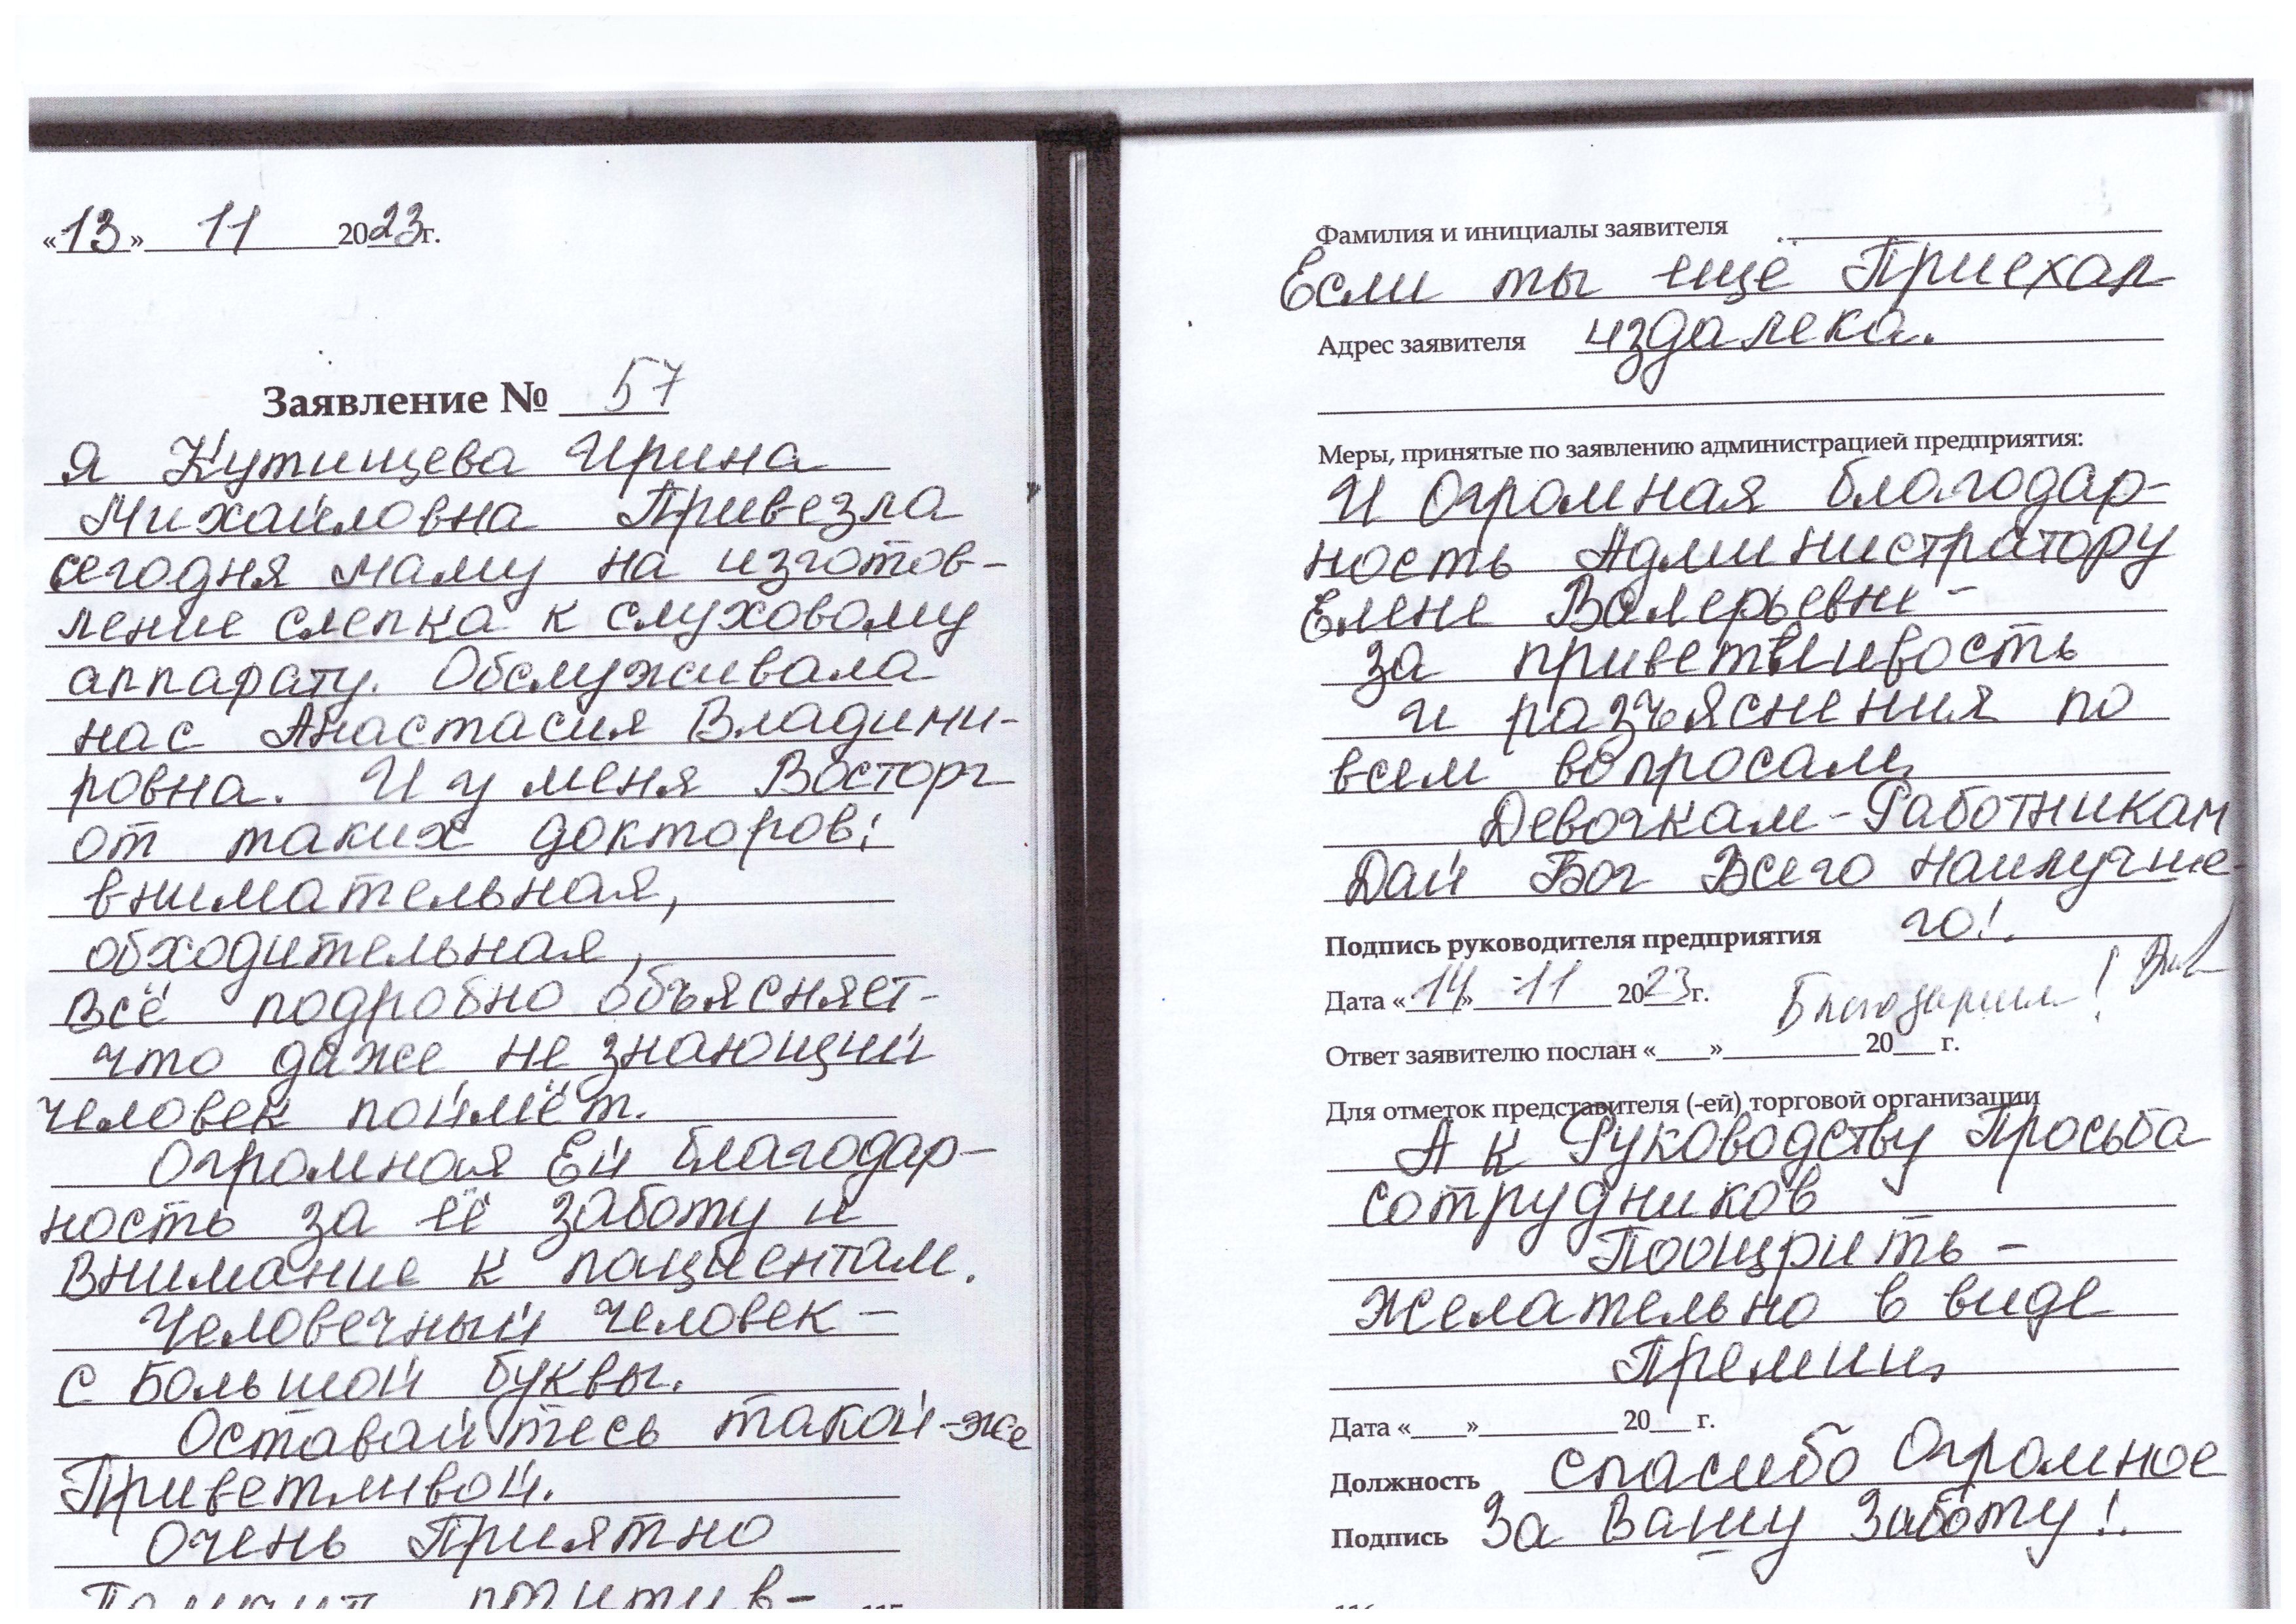 «13» 11 2023г.
Заявление № 57
Я Кутищева Ирина
Михайловна Привезла
сегодня маму на изготов-
ление слепка к слуховому
аппарату. Обслуживала
нас Анастасия Владими-
ровна. И у меня Восторг
от таких докторов:
внимательная,
обходительная,
всё подробно объясняет-
что даже не знающий
человек поймёт.
Огромная Ей благодар-
ность за её заботу и
Внимание к пациентам.
Человечный человек -
с Большой буквы.
Оставайтесь такой-же
Приветливой.
Очень Приятно
Фамилия и инициалы заявителя
Если ты ещё Приехал
Адрес заявителя издалека.
Меры, принятые по заявлению администрацией предприятия:
И Огромная благодар-
ность Администратору
Елене Валерьевне -
за приветливость
и разъяснения по
всем вопросам.
Девочкам-Работникам
Дай Бог Всего Наилучше-
го!.
Подпись руководителя предприятия
Дата «14» 11 2023г. Благодарим!
Ответ заявителю послан «____»__________ 20___ г.
Для отметок представителя (-ей) торговой организации
А к Руководству Просьба
сотрудников
Поощрить -
желательно в виде
Премии.
Дата «____»__________ 20___ г.
Должность Спасибо Огромное
Подпись За Вашу Заботу!.